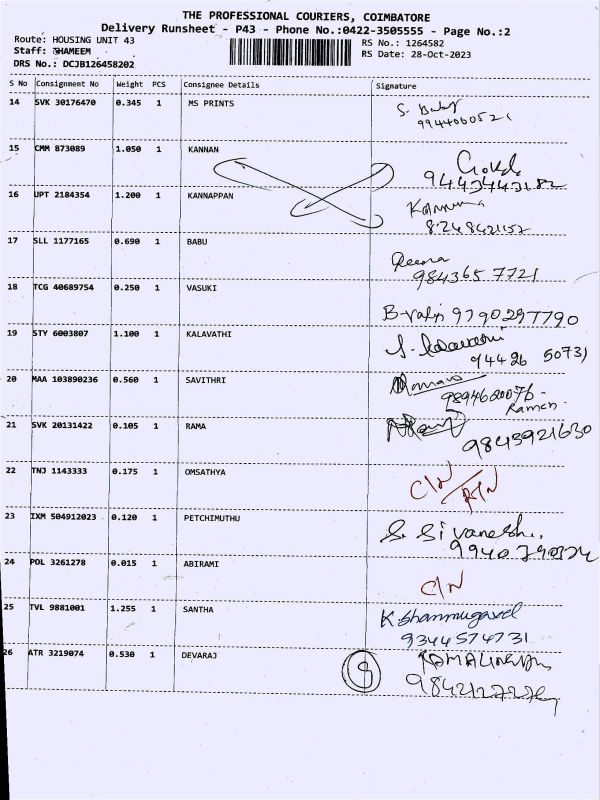 THE PROFESSIONAL COURIERS, COIMBATORE
Delivery Runsheet - P43 - Phone No.:0422-3505555 - Page No.:2
Route: HOUSING UNIT 43
Staff: SHAMEEM
DRS No.: DCJB126458202
RS No.: 1264582
RS Date: 28-Oct-2023
S No Consignment No Weight PCS Consignee Details Signature
14 SVK 30176470 0.345 1 MS PRINTS S. Baby
9944060521
15 CMM 873089 1.050 1 KANNAN
9443443182
16 UPT 2184354 1.200 1 KANNAPPAN
8248421152
17 SLL 1177165 0.690 1 BABU
984365 7721
18 TCG 40689754 0.250 1 VASUKI
9790297790
19 STY 6003807 1.100 1 KALAVATHI
94426 50731
20 MAA 103890236 0.560 1 SAVITHRI
9894620076 -
Raman.
21 SVK 20131422 0.105 1 RAMA
9843921630
22 TNJ 1143333 0.175 1 OMSATHYA C/N
23 IXM 504912023 0.120 1 PETCHIMUTHU S. Sivanesh.
24 POL 3261278 0.015 1 ABIRAMI C/N
25 TVL 9881001 1.255 1 SANTHA K Shanmugavel
9344574731
26 ATR 3219074 0.530 1 DEVARAJ